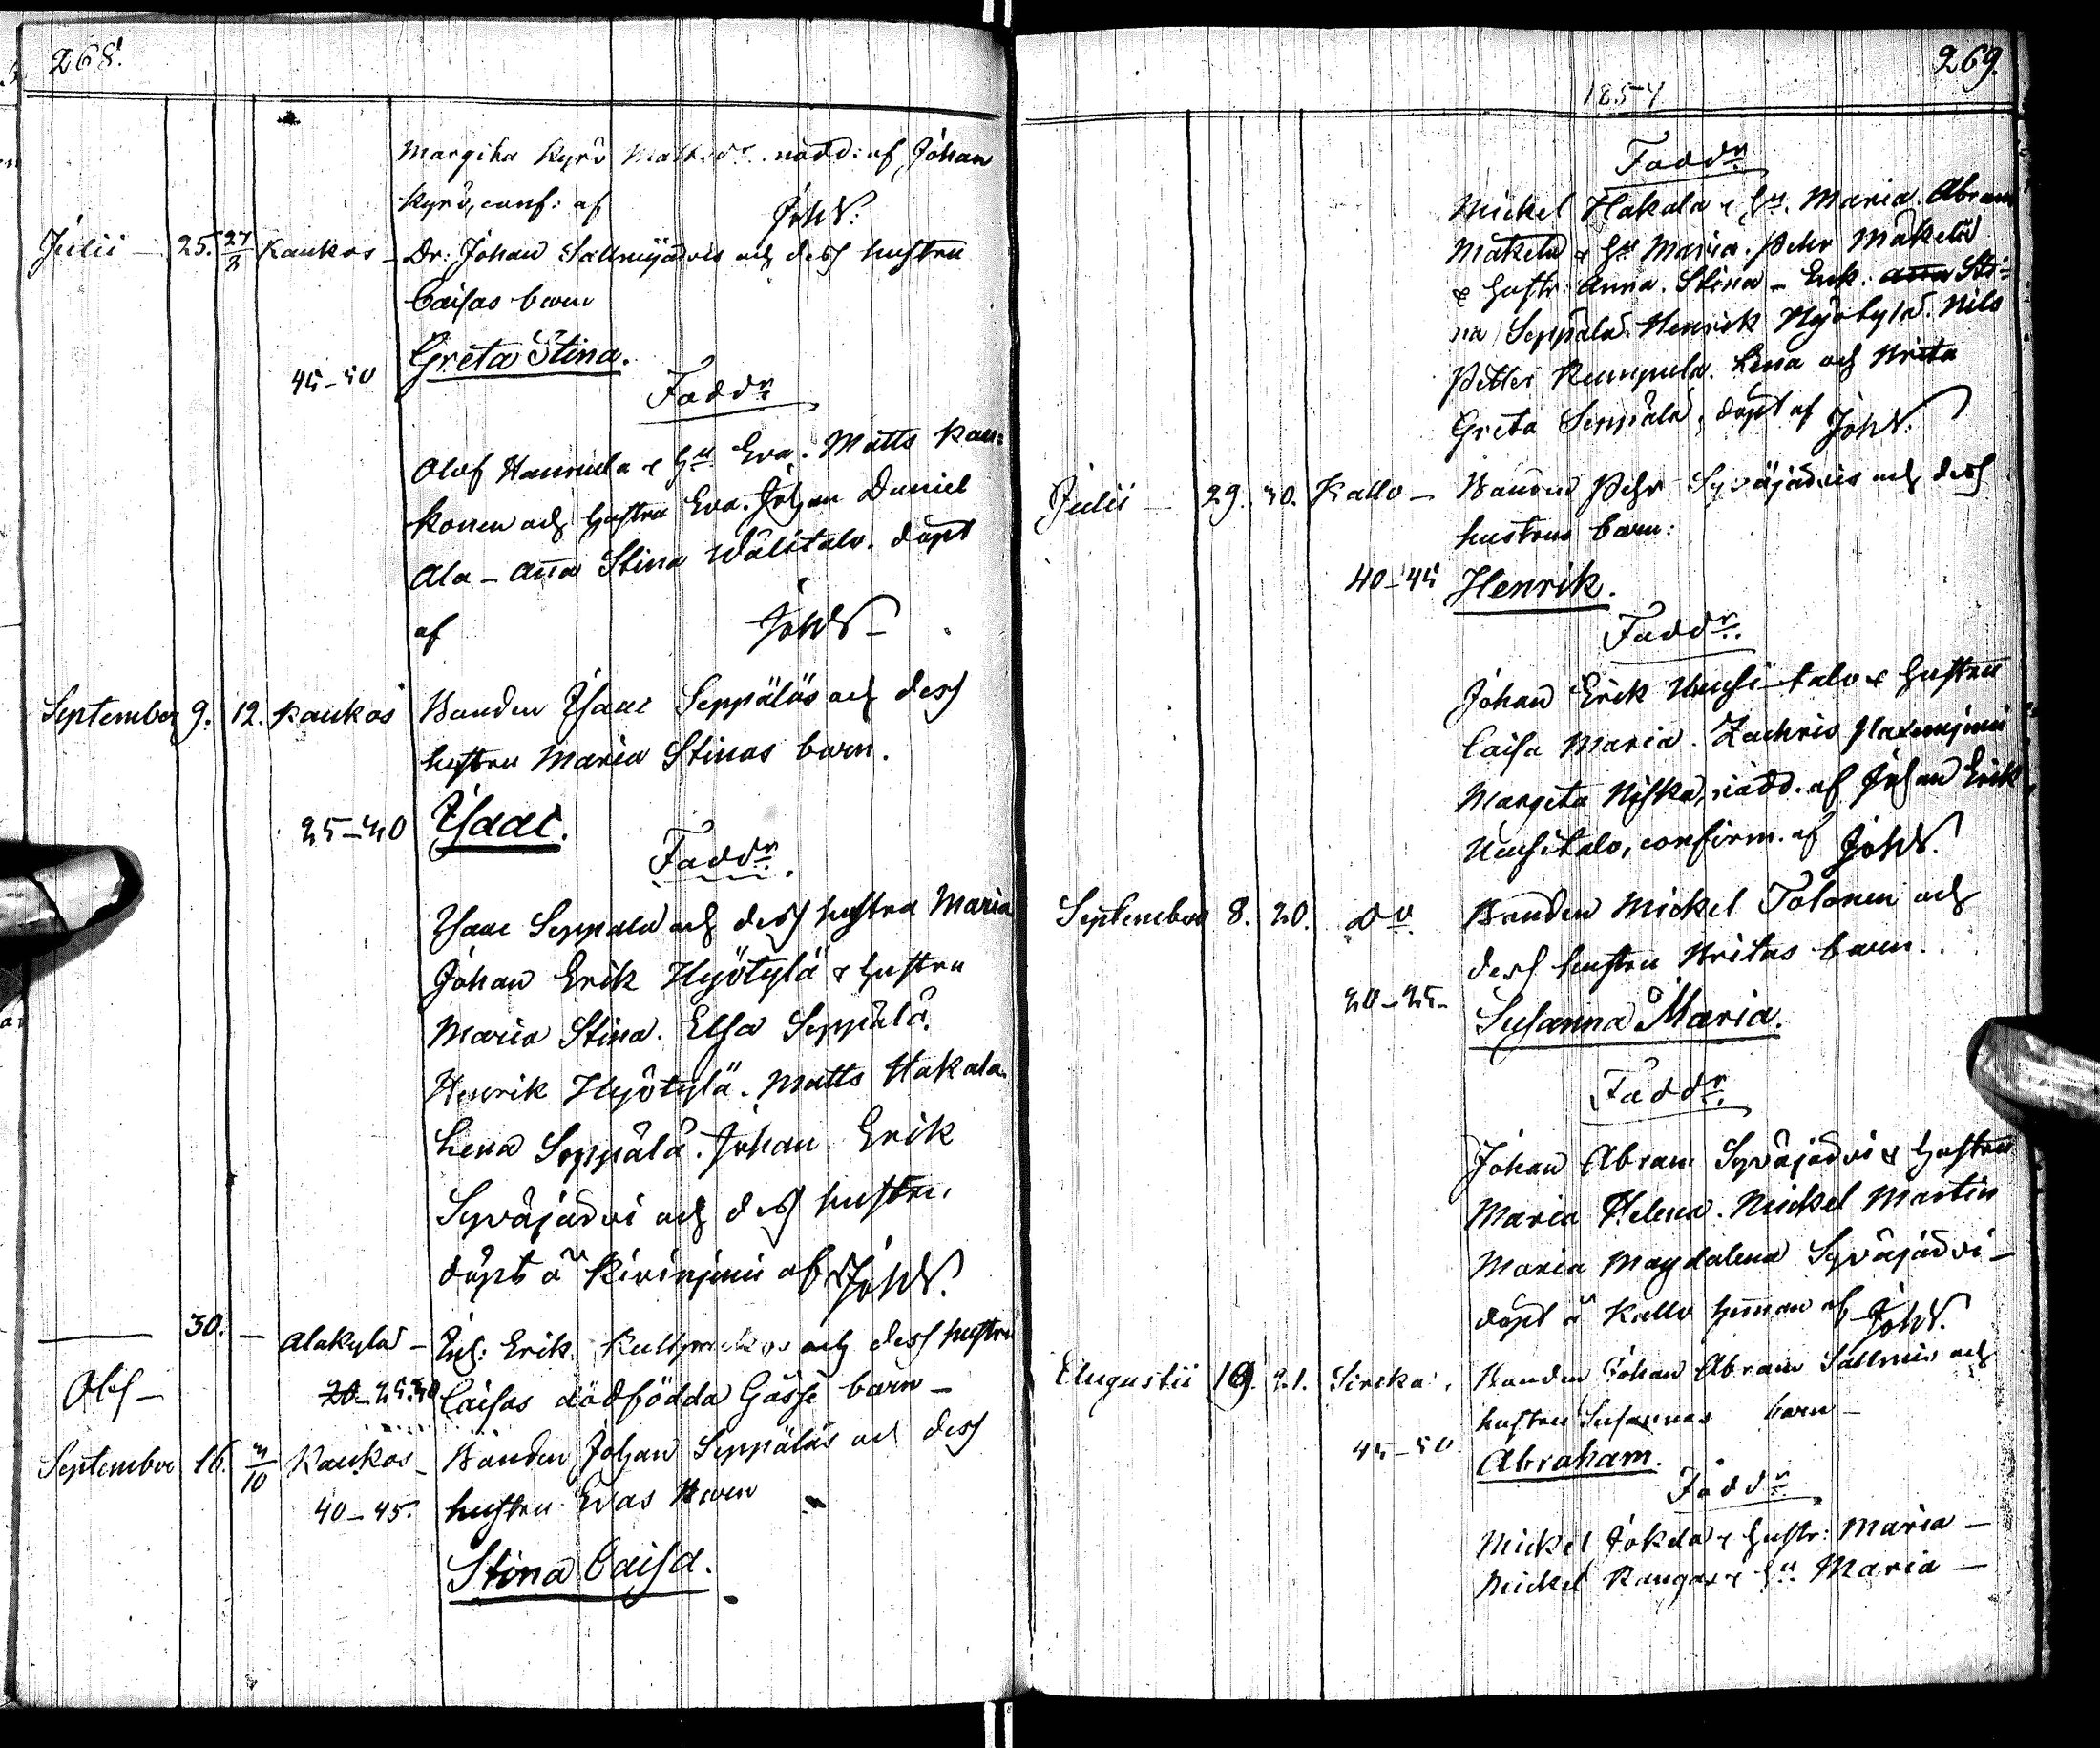 268.
Margita Kyrö Matts dr. nödd: af Johan
Kyrö, conf: af JohW.
Julii — 25. 27/8 Kaukos — Dr: Johan Sallmijärvis och dess hustru
Caisas barn
45-50 Greta Stina.
Faddr
Olof Hannula & Hu Eva. Matts Kau=
konen och hustru Eva. Johan Daniel
Ala - Anna Stina Välitalo. döpt
af JohW —
September 9. 12. Kaukos Bonden Isaac Seppäläs och dess
hustru Maria Stinas barn.
Isaac.
Faddr.
Isaac Seppälä och dess hustru Maria
Johan Erik Hyötylä & hustru
Maria Stina. Elsa Seppälä.
Henrik Hyötylä. Matts Hakala.
Lena Seppälä. Johan Erik
Syväjärvi och dess hustru.
döpt å Kirinjemi af JohW.
— 30. — Alakylä — Erik och dess hustru
Obs — Caisas dödfödda Gosse barn —
September 16. Kaukos — Bonden Johan Seppäläs och dess
40-45. hustru Evas barn
Stina Caisa.
269.
1854
Faddr
Mickel Hakala & Hu. Maria. Abram
Mäkelä & Hu Maria. Pehr Mäkelä
& hustr: Anna. Stina — Enk: Anna Sti=
na Seppälä. Henrik Hyötylä. Nils
Petter Kumpula. Lena och Brita
Greta Seppälä, döpt af JohW.
Julii — 29. 30. Kallo — Bonden Pehr Syväjärvis och dess
hustrus barn:
40-45 Henrik.
Faddr.
Johan Erik Uusi-talo & hustru
Caisa Maria. Zachris
Margeta Niska, nödd. af Johan Erik
Uusitalo, confirm. af JohW.
September 8. 20. Do. Bonden Mickel Tolonen och
dess hustru Britas barn.
20-25- Susanna Maria.
Faddr.
Johan Abram Syväjärvi & hustru
Maria Helena. Mickel Martin
Maria Magdalena Syväjärvi —
döpt å Kallo hemman af JohW.
Augustii 19. 21. Sirkka. Bonden Johan Abram och
hustru Susannas barn —
45-50. Abraham.
Faddr
Mickel Jokela & hustr: Maria —
Mickel Kangas & Hu Maria —